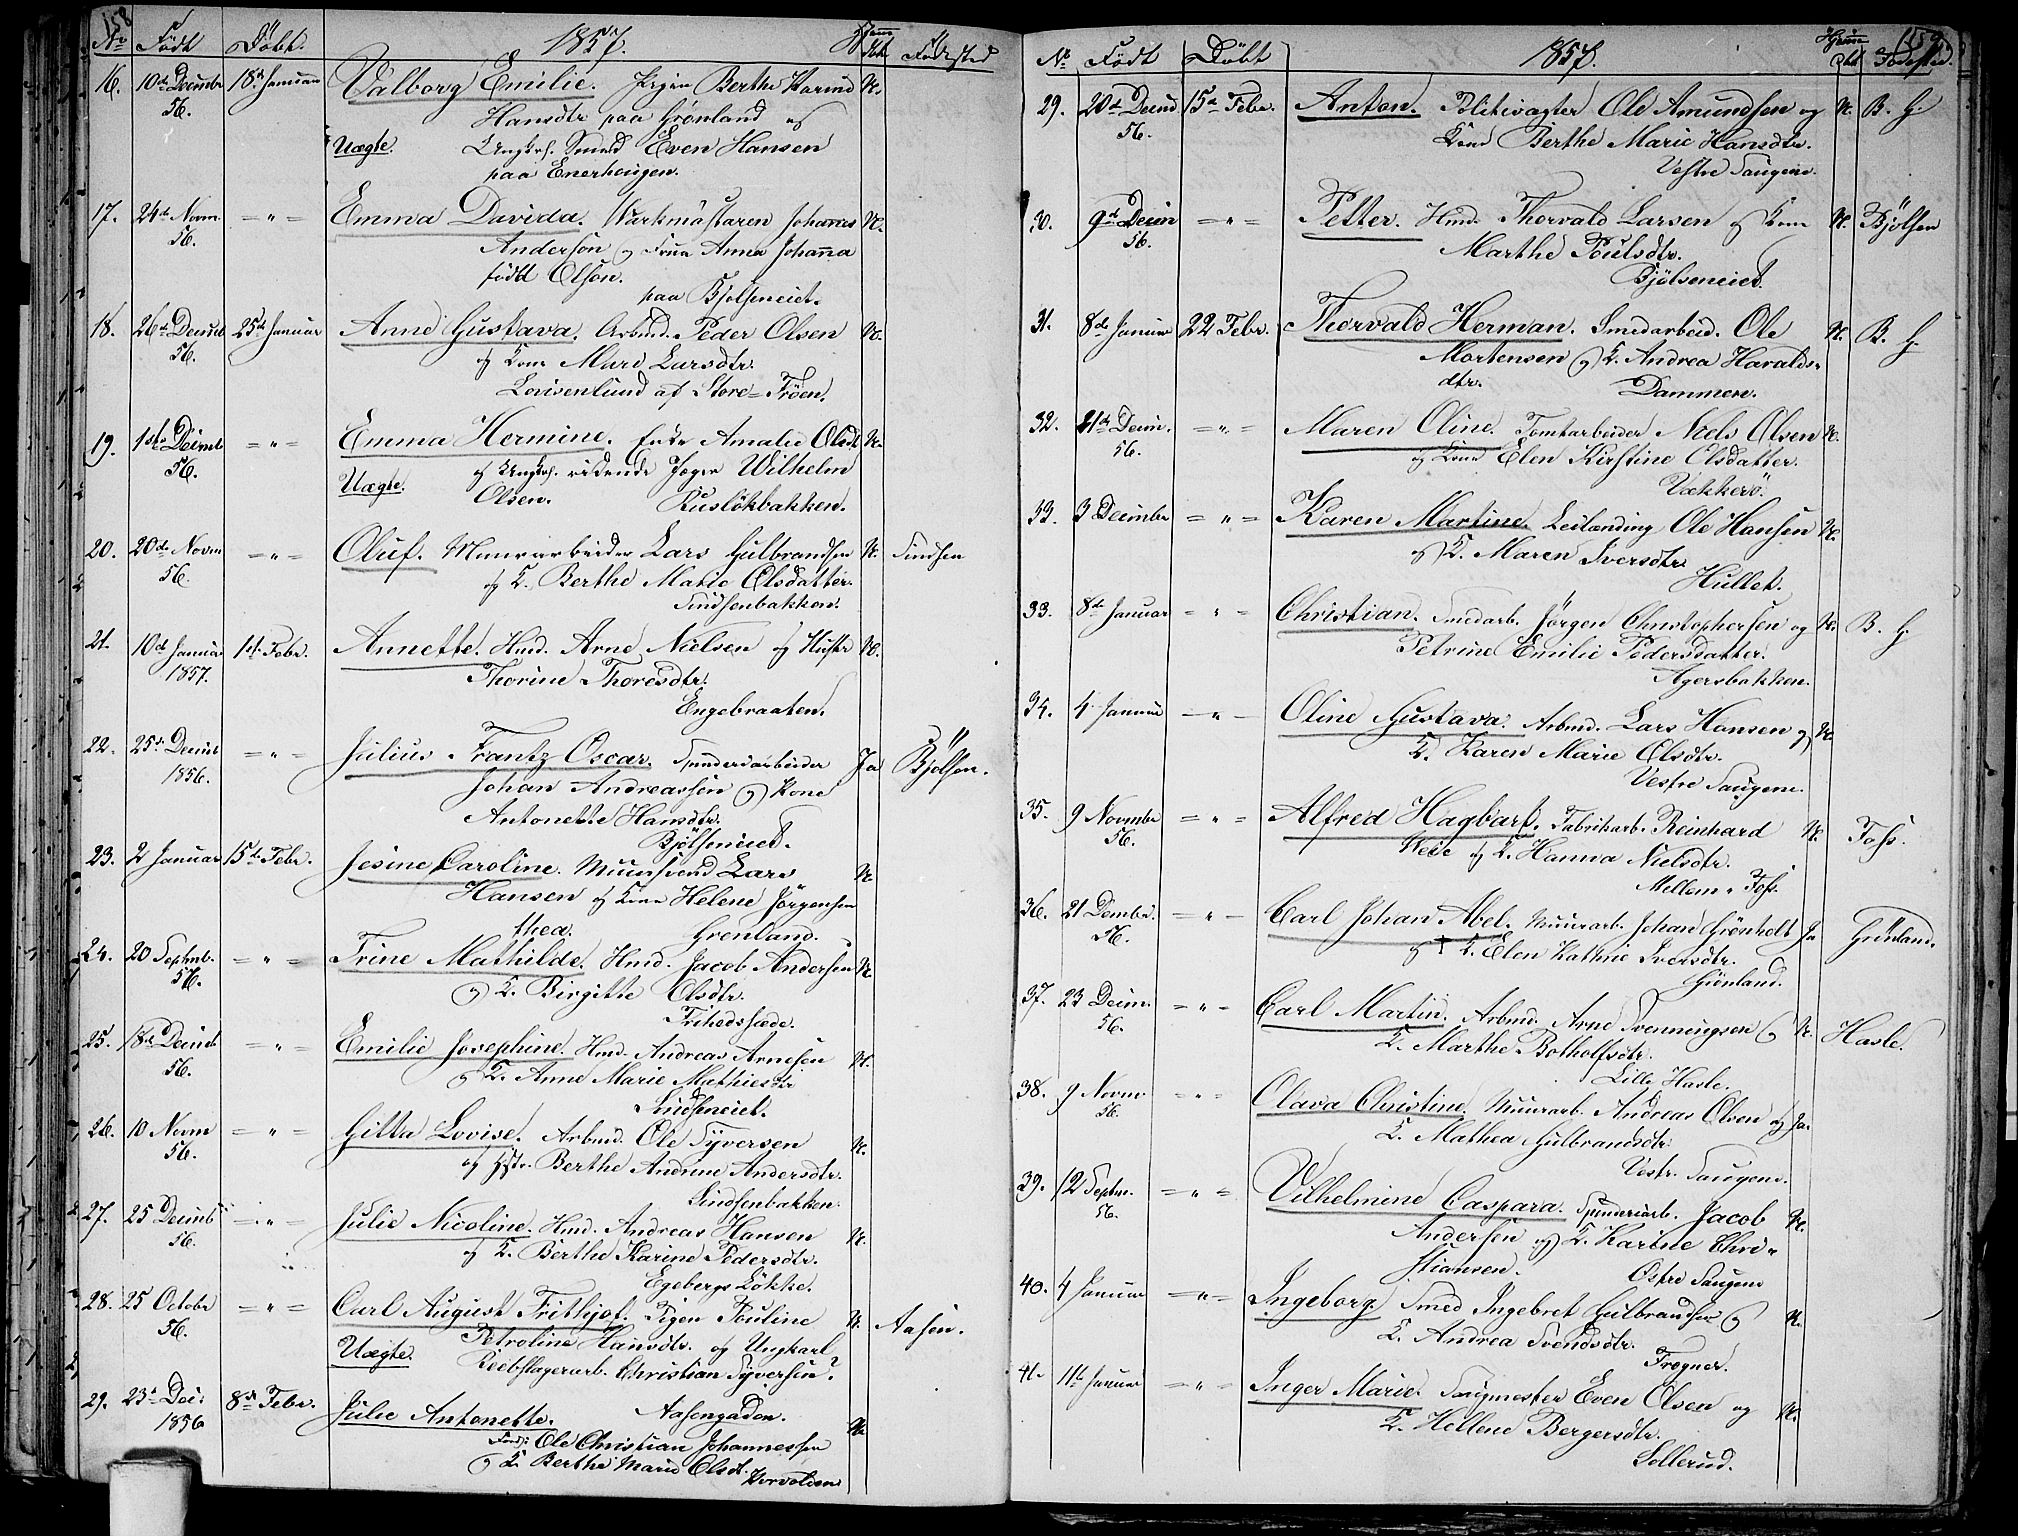 158
No Födt Döbt. 1857. Hjem dbt Födested
16. 10de Decembr 18de Januar Valborg Emilie. Pigen Berthe Karine N.
56. Hansdtr paa Grønland og
Uægte. Ungk. Smed Even Hansen
paa Enerhaugen.
17. 24de Novm. — " — Emma Davida. Värkmästaren Johannes N.
56. Anderson og Frua Anna Johanna
född Olson.
paa Bjølseneiet.
18. 26de Decmb 25de Januar Anne Gustava. Arbmd. Peder Olsen N.
56. og Kone Mari Larsdtr.
Lovisenlund af Store-Frøen.
19. 1ste Decmb — " — Emma Hermine. Enke Amalie Olsdt N.
56. og Ungk. ridende Jæger Wilhelm
Uægte. Olsen. Ruseløkbakken.
20. 20de Novm — " — Oluf. Muurarbeider Lars Gulbrandsen N. Sindsen
56. og K. Berthe Marie Olsdatter.
Sindsenbakken.
21. 10de Januar 1ste Febr. Annette. Hmd. Arne Nielsen og Hustr N.
1857. Thorine Thoresdtr.
Engebraaten.
22. 25de Decmb — " — Julius Frantz Oscar. Spinderiarbeider Ja Bjølsen.
1856. Johan Andreassen og Kone
Antonette Hansdtr.
Bjølseneiet.
23. 2 Januar 15de Febr. Jesine Caroline. Muursvend Lars N.
Hansen og Kone Helene Jørgensen
thea. Grønland.
24. 20 Septmb. — " — Trine Mathilde. Hmd. Jacob Andersen N.
56. og K. Birgitte Olsdtr.
Frihedssæde.
25. 18de Decmb — " — Emilie Josephine. Hmd. Andreas Arnesen N.
56. og K. Anne Marie Mathiesdtr
Sindseneiet.
26. 10 Novm — " — Gitta Lovise. Arbmd. Ole Syversen N.
56. og Hstr. Berthe Andrine Andersdtr.
Sindsenbakken.
27. 25 Decmb — " — Julie Nicoline. Hmd. Andreas Hansen N.
56. og K. Berthe Karine Pedersdtr.
Egebergs Løkke.
28. 25 Octobr — " — Carl August Frithjof. Pigen Pouline N. Aasen.
56. Petroline Hansdtr. og Ungkarl
Uægte. Reebslagerarb. Christian Syversen?
29. 23de Dec. 8de Febr. Julie Antonette. Aasengaden.
1856 Ole Christian Johannessen N.
og K. Berthe Marie Olsdt. Torvolden
159
No Födt Döbt 1857. Hjem dbt Födested.
29. 20de Decmb 15de Febr. Anton. Politivagter Ole Amundsen og N. B. G.
56. Kone Berthe Marie Hansdtr.
Vestre Saugene.
30. 9de Decm — " — Petter. Hmd. Thorvald Larsen og Kone N. Bjølsen
56. Marthe Poulsdtr.
Bjølseneiet.
31. 8de Januar 22 Febr. Thorvald Herman. Smedarbeid. Ole N. B. G.
Mortensen og K. Andrea Haralds-
dtr. Dammen.
32. 21de Decm. — " — Maren Oline. Tomtarbeider Niels Olsen N.
56. og Kone Elen Kirstine Olsdatter.
Vækkerø.
33. 3 Decembr — " — Karen Martine. Leilænding Ole Hansen N.
og K. Maren Iversdtr.
Hullet.
33. 8de Januar — " — Christian. Smedarb. Jørgen Christophersen og N. B. G.
Petrine Emilie Pedersdatter.
Agersbakken.
34. 4 Januar — " — Oline Gustava. Arbmd. Lars Hansen og N.
K. Karen Marie Olsdtr.
Vestre Saugene.
35. 9 Novmbr — " — Alfred Hagbart. Fabrikarb. Reinhard N. Foss.
56. og K. Hanna Nielsdtr.
Mellem-Foss.
36. 21 Decmbr. — " — Carl Johan Abel. Muurarb. Johan Grønholt Ja Grønland.
56. og K. Elen Kathrie Iversdtr.
Grønland.
37. 23 Decm. — " — Carl Martin. Arbmd. Arne Svenningsen og N. Hasle.
56. K. Marthe Botholfsdtr.
Lille Hasle.
38. 9 Novm. — " — Olava Christine. Muurarb. Andreas Olsen og Ja.
56. K. Mathea Gulbrandsdtr.
Vestr. Saugene.
39. 12 Septm. — " — Vilhelmine Caspara. Spinneriarb. Jacob N.
56. Andersen og K. Karine Chri-
stiansen. Østre Saugene
40. 4 Januar — " — Ingeborg. Smed Ingebret Gulbrandsen og N.
K. Andrea Svendsdtr.
Frogner.
41. 11te Januar — " — Inger Marie. Saugmester Even Olsen og N.
K. Hellene Bergersdtr.
Sollerud.